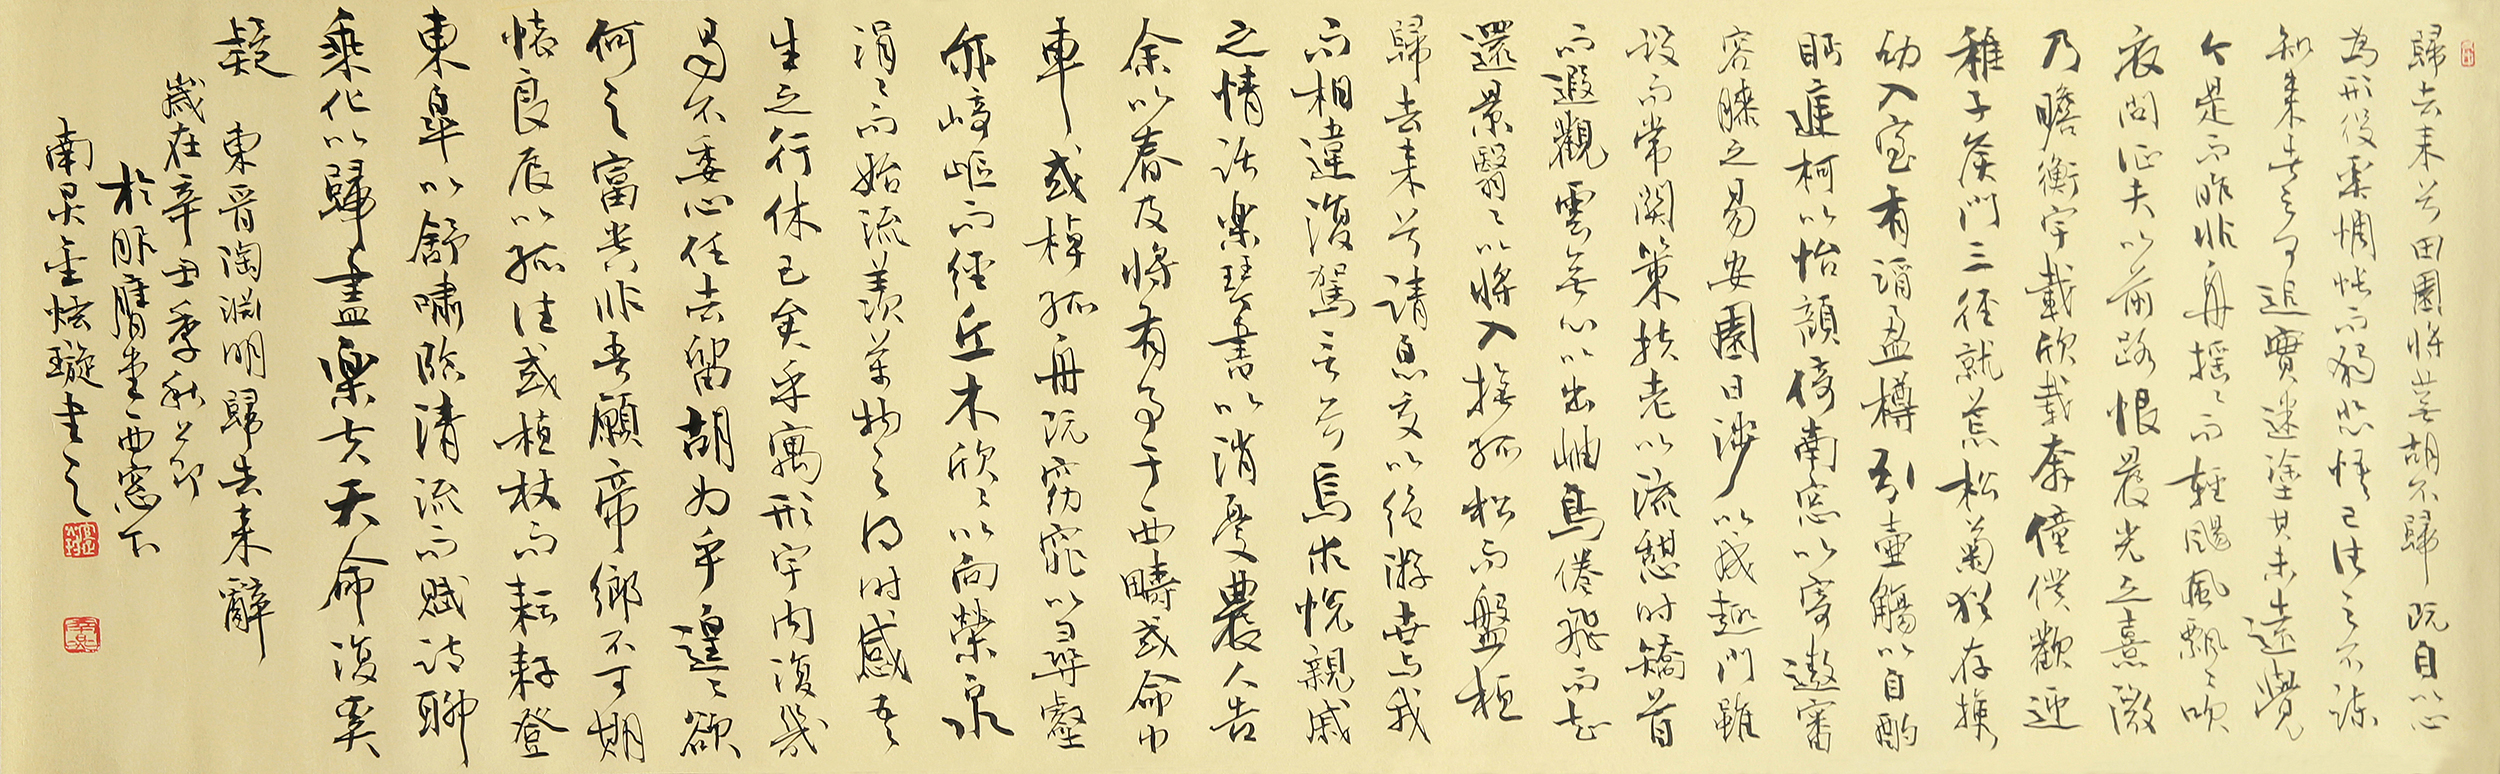 歸去来兮田園将蕪胡不歸既自以心
為形役奚惆悵而獨悲悟已往之不諫
知来者之可追實迷塗其未遠覺
今是而昨非舟摇〻而輕颺風飄〻吹
衣問征夫以前路恨晨光之熹微
乃瞻衡宇載欣載奔僮僕歡迎
稚子候門三径就荒松菊猶存携
幼入室有酒盈樽引壺觴以自酌
眄庭柯以怡顔倚南窓以寄遨審
容膝之易安園日涉以成趣門雖
設而常関策扶老以流憩时矯首
而遐觀雲無心以出岫鳥倦飛而知
還景翳〻以将入撫孤松而盤桓
歸去来兮請息交以绝游世与我
而相違復駕言兮焉求悦親戚
之情話樂琴書以消憂農人告
余以春及将有事于西疇或命巾
車或棹孤舟既窈窕以尋壑
亦崎嶇而經丘木欣〻以向榮泉
涓〻而始流羨萬物之得时感吾
生之行休已矣乎寓形宇内復幾
曷不委心任去留胡为乎遑〻欲
何之富貴非吾願帝鄉不可期
懐良辰以孤往或植杖而耘耔登
東皋以舒嘯臨清流而賦詩聊
乘化以歸盡樂夫天命復奚
疑 東晋陶淵明歸去来辭
歲在辛丑季秋之節
於服膺堂西窓下
南昊金炫璇書之